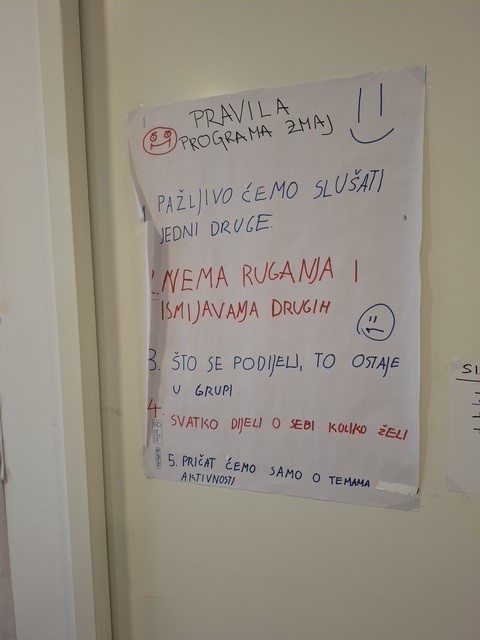 PRAVILA
PROGRAMA ZMAJ
PAŽLJIVO ĆEMO SLUŠATI
JEDNI DRUGE.
2. NEMA RUGANJA I
ISMIJAVANJA DRUGIH
3. ŠTO SE PODIJELI, TO OSTAJE
U GRUPI
4. SVATKO DIJELI O SEBI KOLIKO ŽELI
5. PRIČAT ĆEMO SAMO O TEMAMA
AKTIVNOSTI
SI